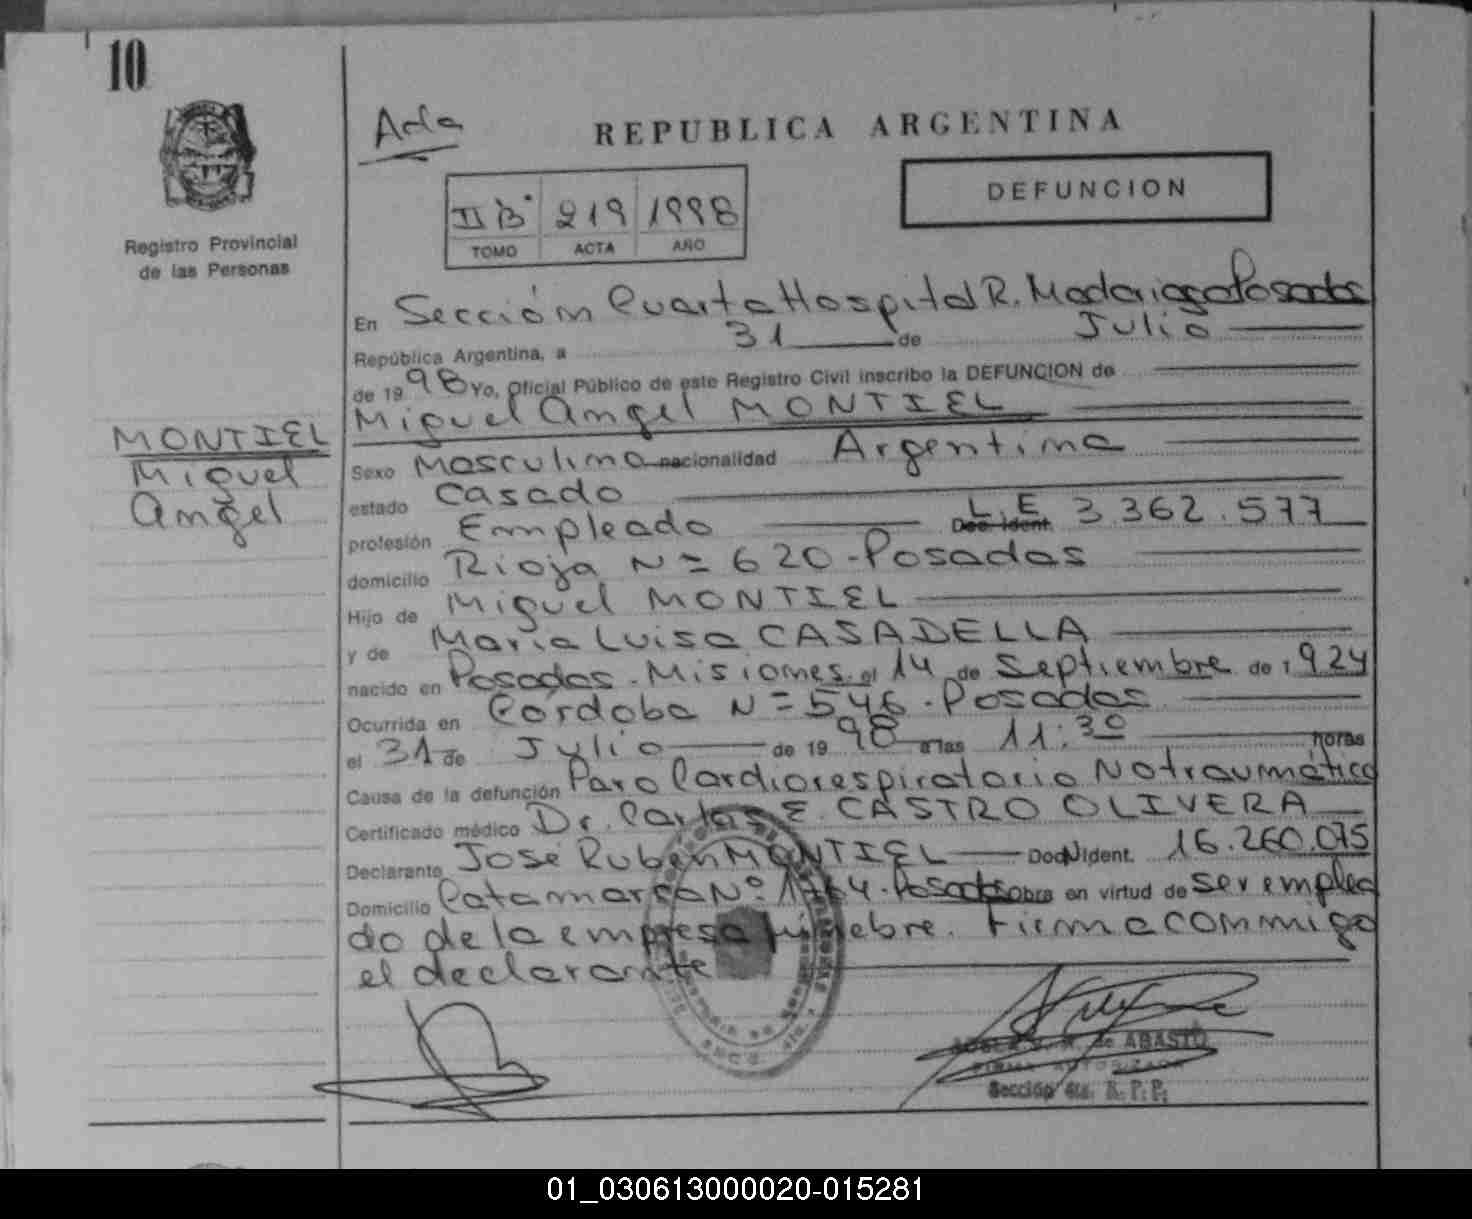 10
Registro Provincial
de las Personas
MONTIEL
Miguel
Angel
REPUBLICA ARGENTINA
DEFUNCION
II Bº 219 1998
TOMO ACTA AÑO
En Sección Cuarta Hospital R. Madariaga Posadas
República Argentina, a 31 de Julio
de 1998 Yo, Oficial Público de este Registro Civil inscribo la DEFUNCION de
Miguel Angel MONTIEL
Sexo Masculino nacionalidad Argentina
estado Casado
profesión Empleado L.E Doc Ident. 3.362.577
domicilio Rioja Nº 620 - Posadas
Hijo de Miguel MONTIEL
y de Maria Luisa CASADELLA
nacido en Posadas. Misiones. el 14 de Septiembre de 1924
Ocurrida en Cordoba Nº 546. Posadas
el 31 de Julio de 1998 a las 11:30 horas
Causa de la defunción Paro Cardiorespiratorio No traumático
Certificado médico Dr. Carlos E. CASTRO OLIVERA
Declarante José Ruben MONTIEL Doc N Ident. 16.260.075
Domicilio Catamarca Nº. 1764. Posadas obra en virtud de ser emplea
do de la empresa fúnebre. Firma conmigo
el declarante
de ABASTO
FIRMA AUTORIZADA
Sección 4ta. R.P.P.
01_030613000020-015281